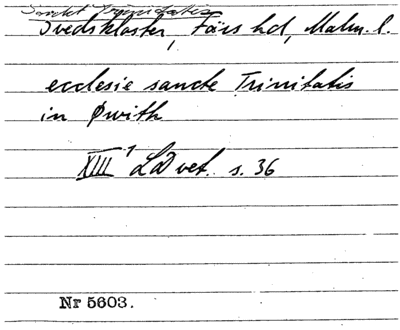 Sankt Trinitatis
Övedskloster, Färs hd, Malm. l.
ecclesie sancte Trinitatis
in Øwith
XIII¹ LD vet. s. 36
Nr 5603.